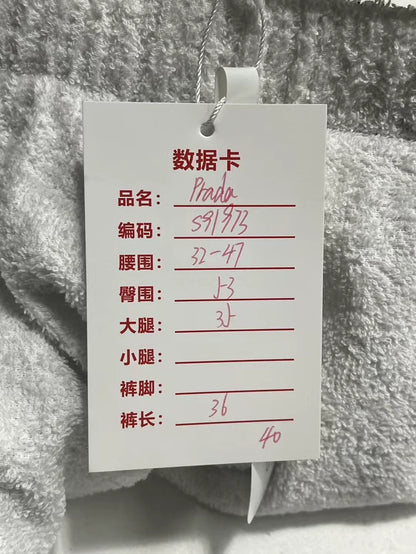 数据卡
品名: Prada
编码: S91973
腰围: 32-47
臀围: 53
大腿: 35
小腿:
裤脚:
裤长: 36
40